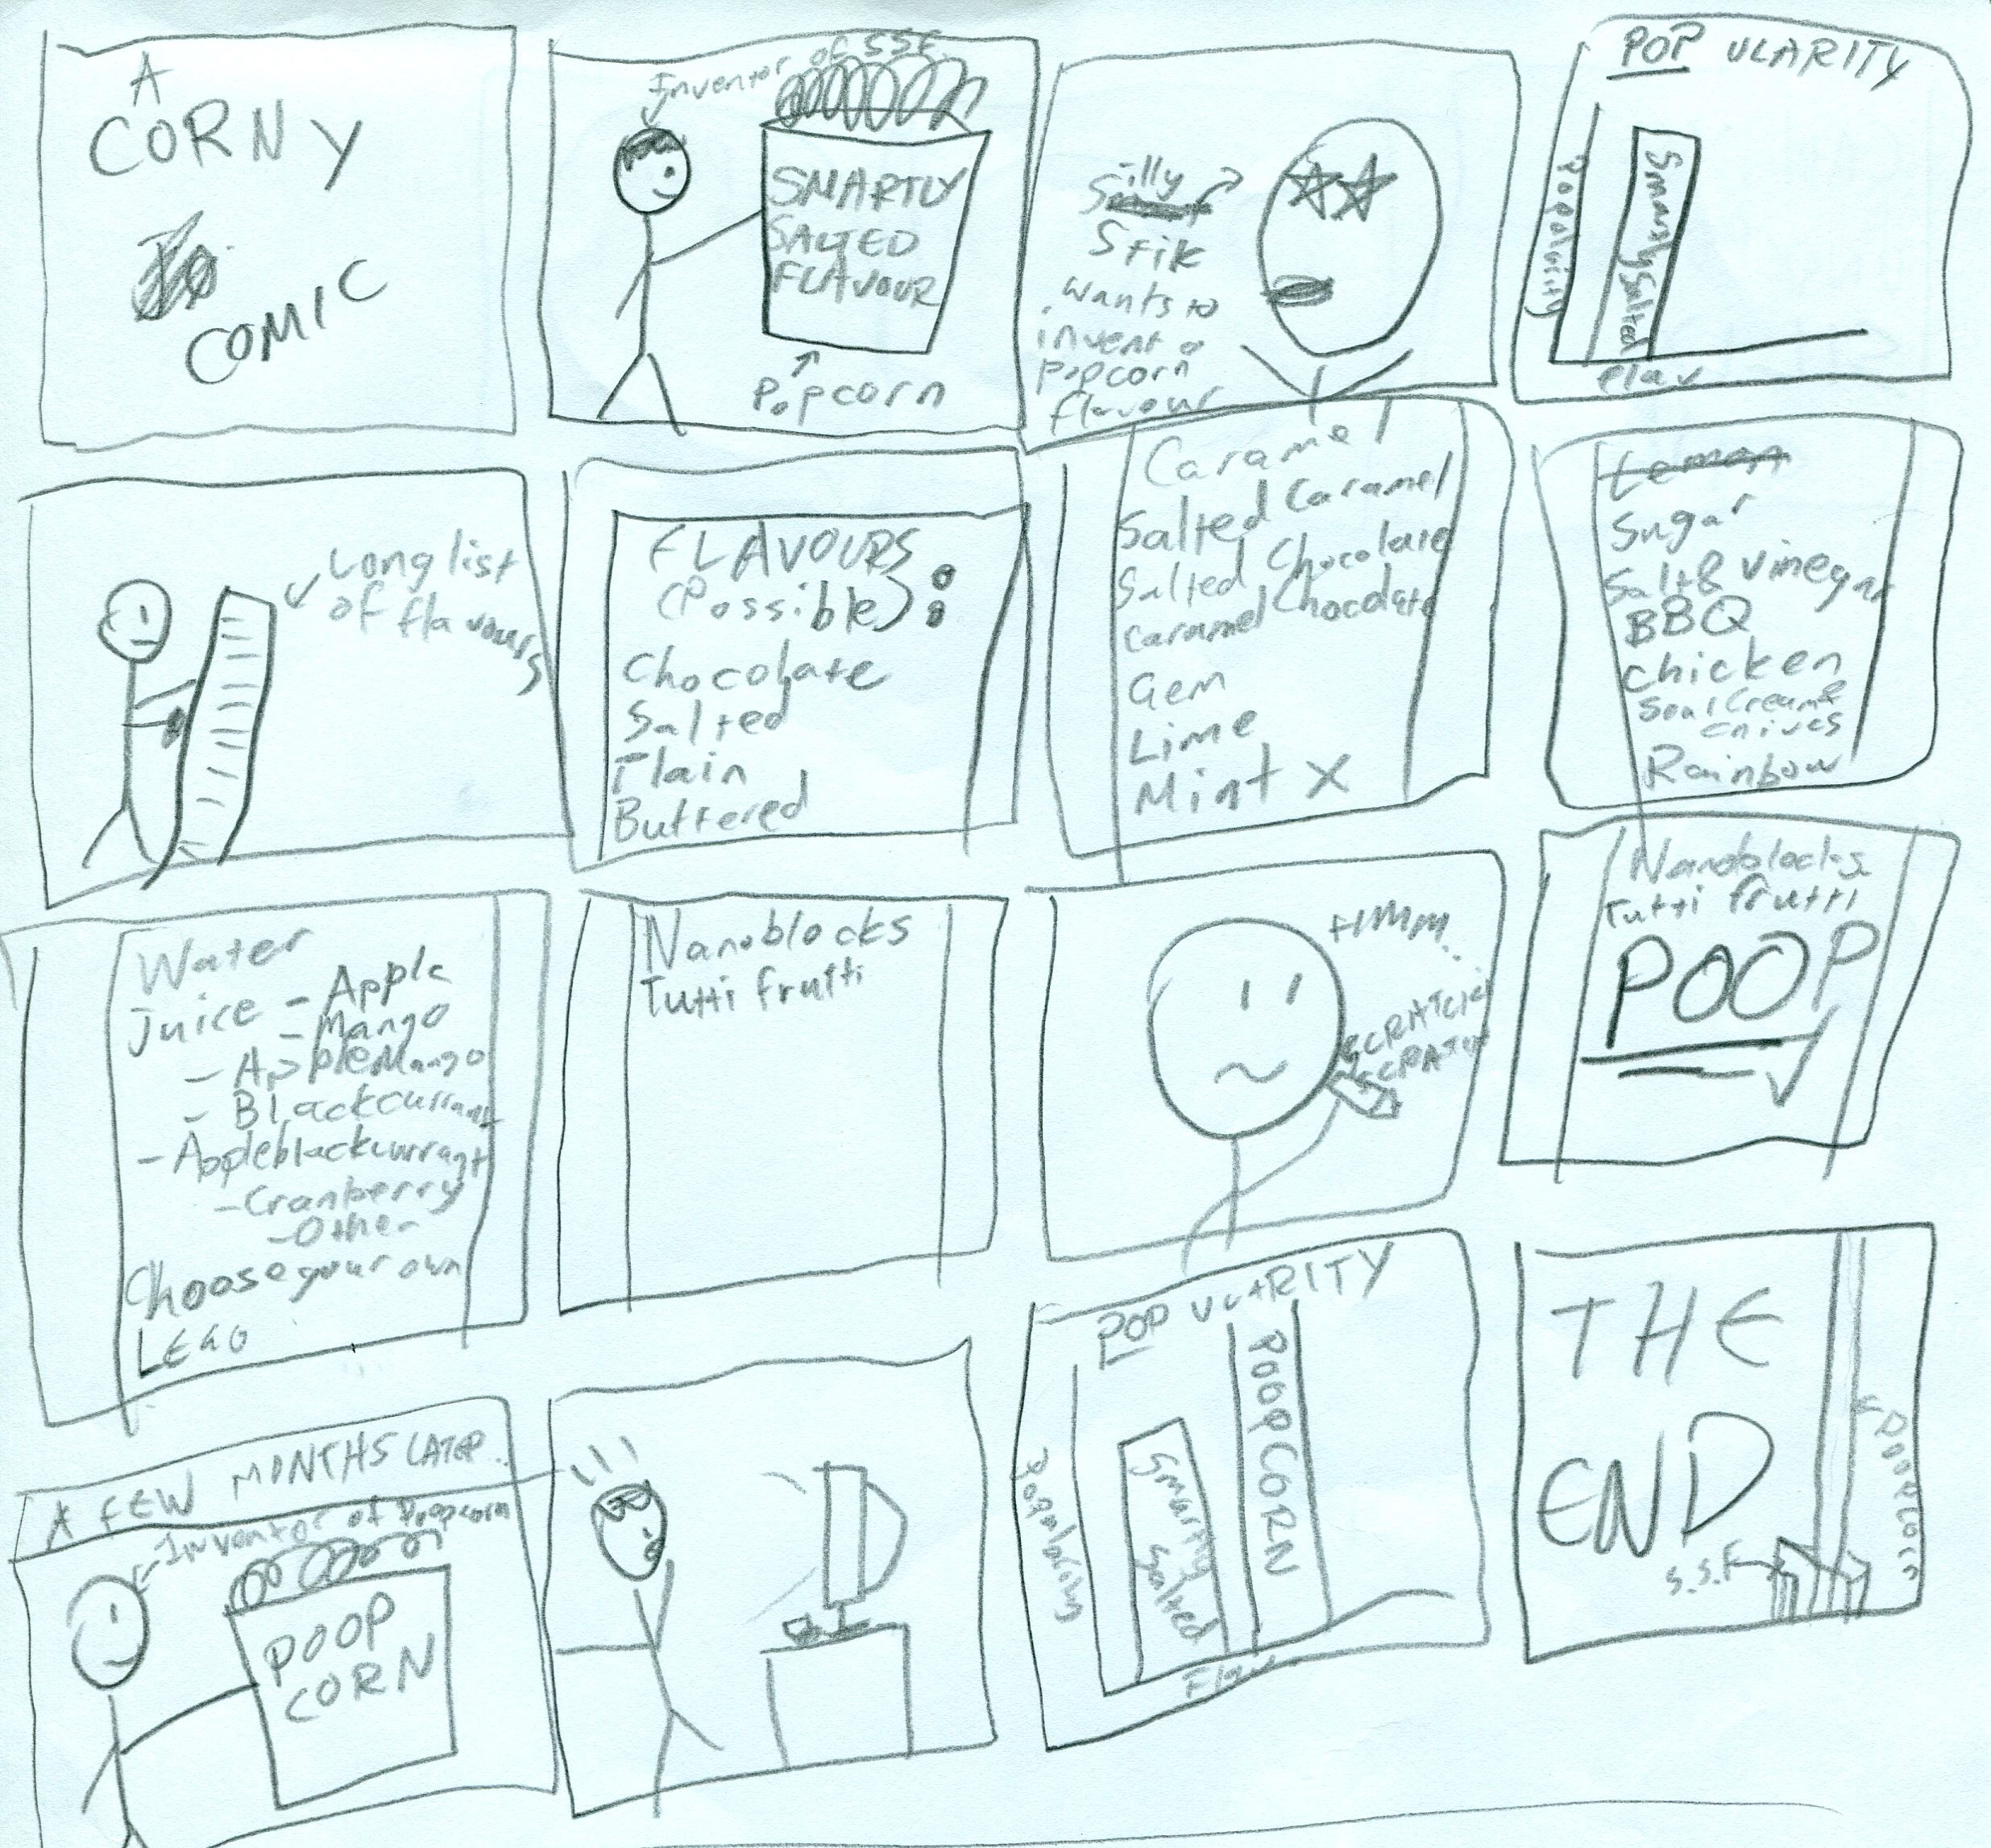 A
CORNY
COMIC
Inventor of SSF
SMARTLY
SALTED
FLAVOUR
Popcorn
Silly
Stik
wants to
invent a
popcorn
flavour
POPULARITY
Popularity
Smartly Salted
Flav
Long list
of flavours
FLAVOURS
(Possible):
Chocolate
Salted
Plain
Buttered
Caramel
Salted Caramel
Salted Chocolate
Caramel Chocolate
Gem
Lime
Mint X
Lemon
Sugar
Salt & Vinegar
BBQ
Chicken
Sour Cream &
Chives
Rainbow
Water
Juice - Apple
- Mango
- AppleMango
- Blackcurrant
- Appleblackcurrant
- Cranberry
- Other
Choose your own
LEGO
Nanoblocks
Tutti frutti
HMM..
SCRATCH
SCRATCH
Nanoblocks
Tutti frutti
POOP
A FEW MONTHS LATER...
Inventor of Poopcorn
POOP
CORN
POPULARITY
Popularity
Smartly
Salted
POOPCORN
Flav.
THE
END
S.S.F